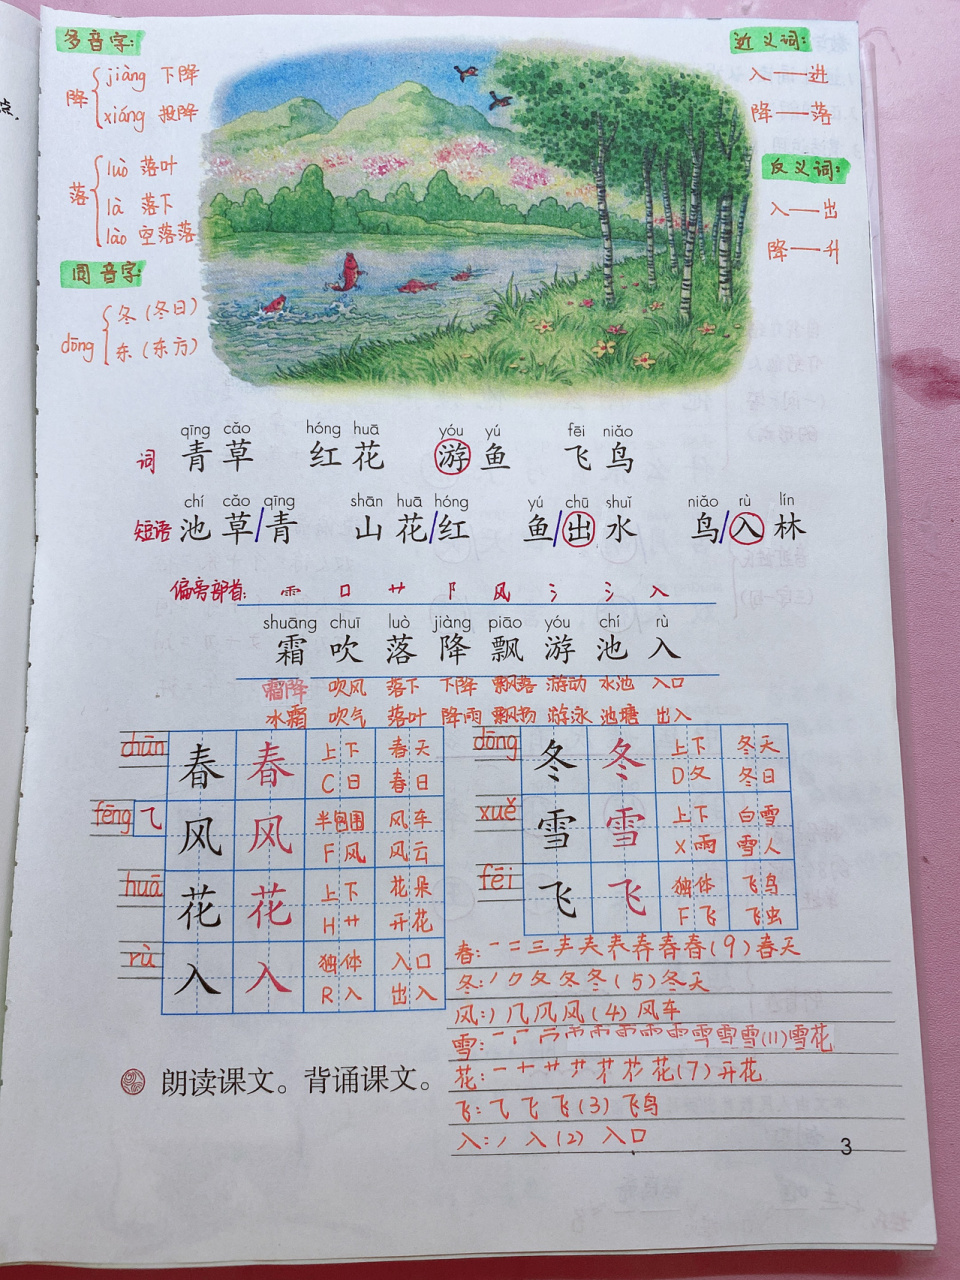 多音字:
降 jiàng 下降
xiáng 投降
落 luò 落叶
là 落下
lào 空落落
同音字:
dōng 冬(冬日)
东(东方)
近义词:
入——进
降——落
反义词:
入——出
降——升
点.
qīng cǎo hóng huā yóu yú fēi niǎo
词 青草 红花 游鱼 飞鸟
chí cǎo qīng shān huā hóng yú chū shuǐ niǎo rù lín
短语 池草/青 山花/红 鱼/出水 鸟/入林
偏旁部首: ⻗ 口 艹 阝 风 氵 氵 入
shuāng chuī luò jiàng piāo yóu chí rù
霜 吹 落 降 飘 游 池 入
霜降 吹风 落下 下降 飘落 游动 水池 入口
水霜 吹气 落叶 降雨 飘扬 游泳 池塘 出入
chūn 春 春 上下 春天
C 日 春日
fēng ⺄ 风 风 半包围 风车
F 风 风云
huā 花 花 上下 花朵
H 艹 开花
rù 入 入 独体 入口
R 入 出入
dōng 冬 冬 上下 冬天
D 夂 冬日
xuě 雪 雪 上下 白雪
X 雨 雪人
fēi 飞 飞 独体 飞鸟
F 飞 飞虫
春: 春(9)春天
冬: 冬(5)冬天
风: 风(4)风车
雪: 雪(11)雪花
花: 花(7)开花
飞: 飞(3)飞鸟
入: 入(2)入口
朗读课文。背诵课文。
3